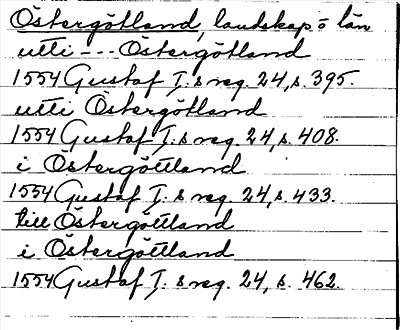 Östergötland, landskap o län
utti --- Östergötland
1554 Gustaf I:s reg. 24, s. 395.
utti Östergötland
1554 Gustaf I:s reg. 24, s. 408.
i Östergöttland
1554 Gustaf I:s reg. 24, s. 433.
till Östergöttland
i Östergöttland
1554 Gustaf I:s reg. 24, s. 462.